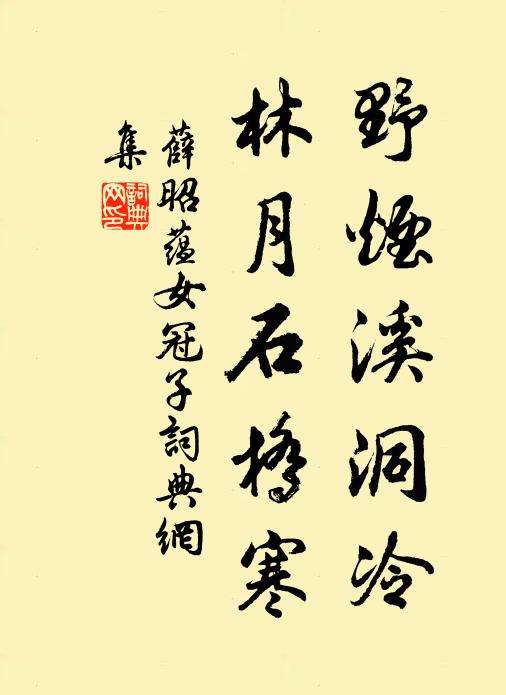 野煙溪洞冷
林月石橋寒
薛昭蘊女冠子詞典網
集
詞典
网印